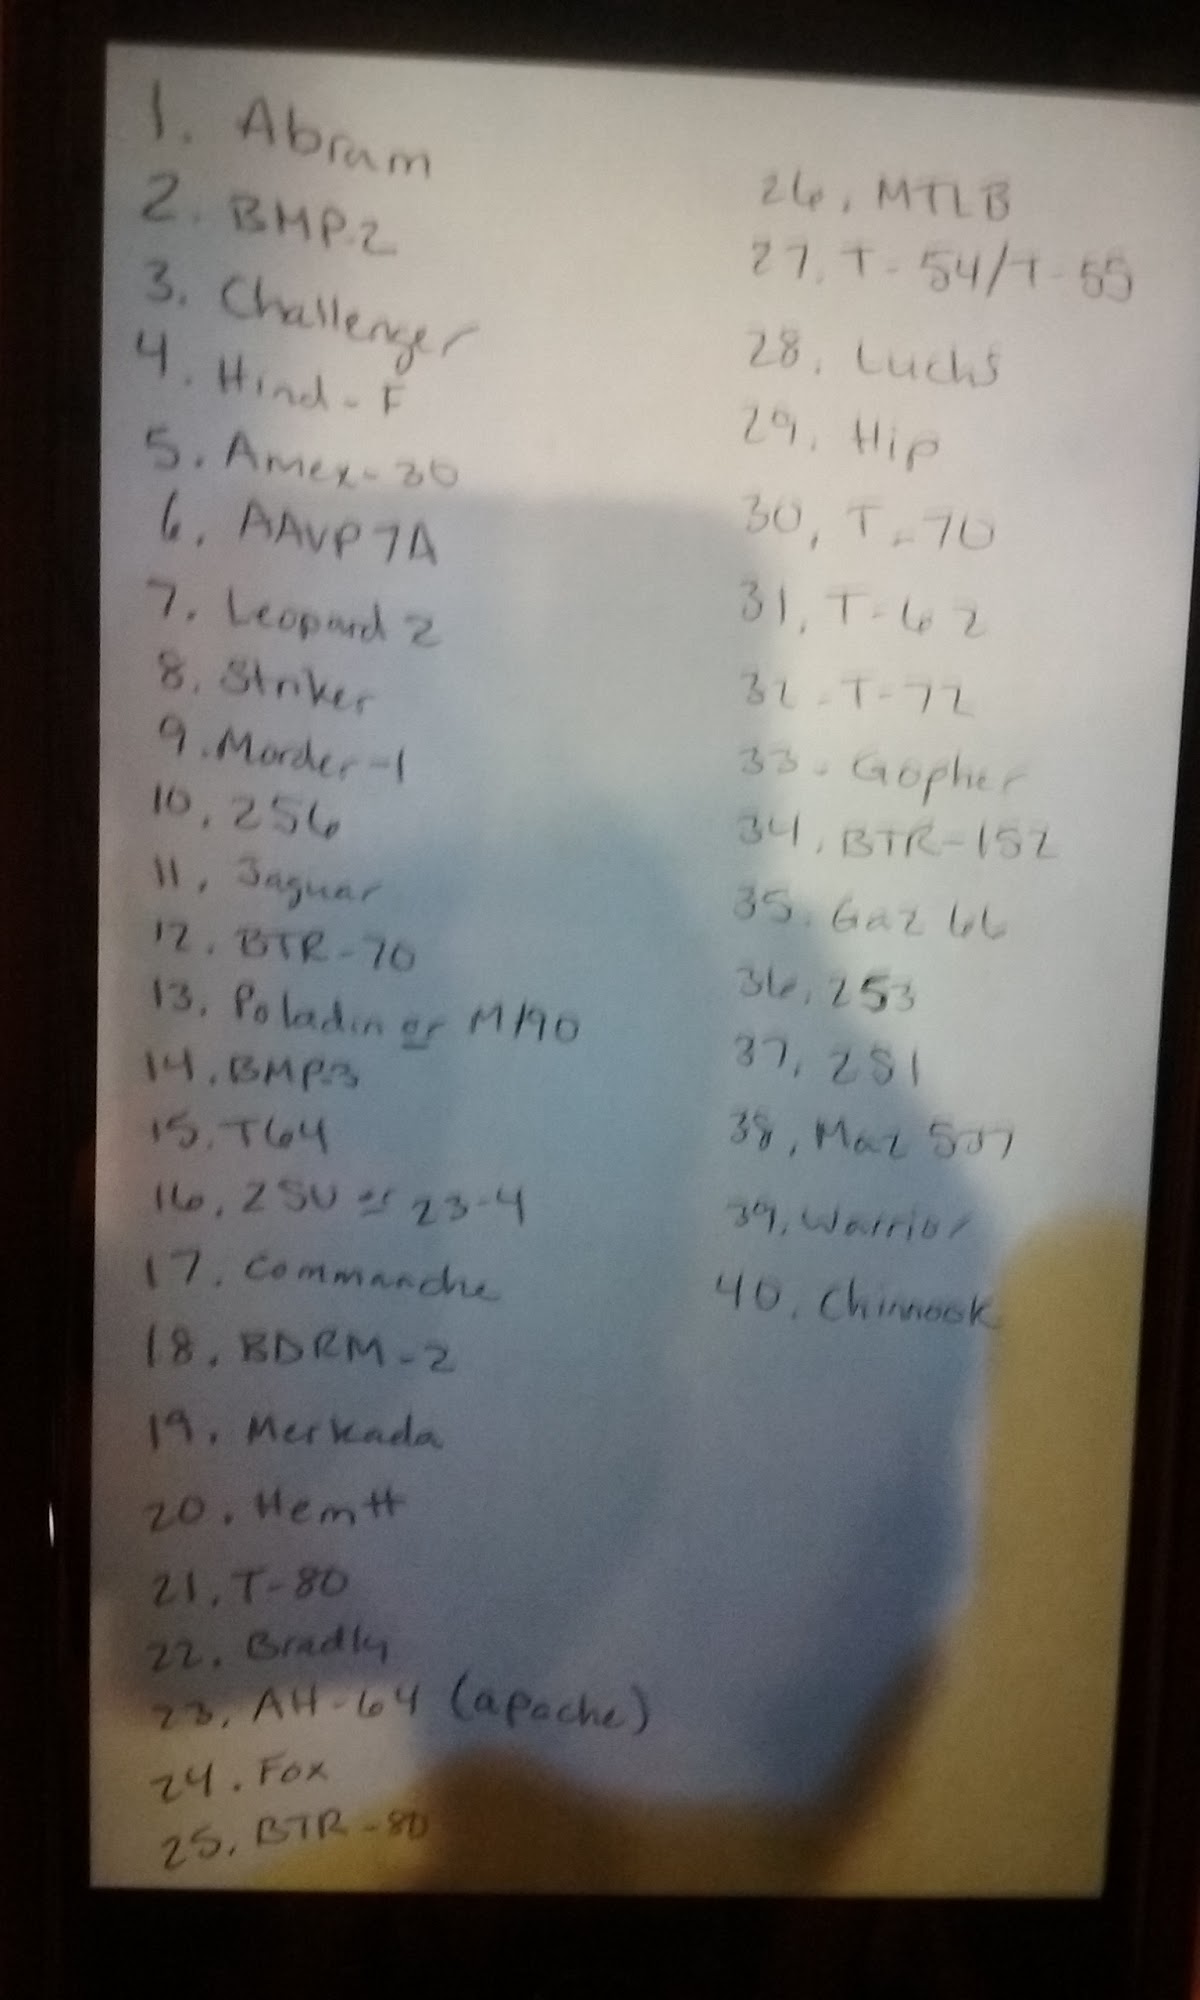 1. Abram
2. BMP-2
3. Challenger
4. Hind-F
5. Amex-30
6. AAVP7A
7. Leopard 2
8. Striker
9. Morder-1
10. 2S6
11. Jaguar
12. BTR-70
13. Poladin or M190
14. BMP-3
15. T64
16. ZSU or 23-4
17. Commanche
18. BDRM-2
19. Merkada
20. Hemtt
21. T-80
22. Bradly
23. AH-64 (apache)
24. Fox
25. BTR-80
26. MTLB
27. T-54/T-55
28. Luchs
29. Hip
30. T-70
31. T-62
32. T-72
33. Gopher
34. BTR-152
35. Gaz 66
36. 2S3
37. 2S1
38. Maz 537
39. Warrior
40. Chinnook